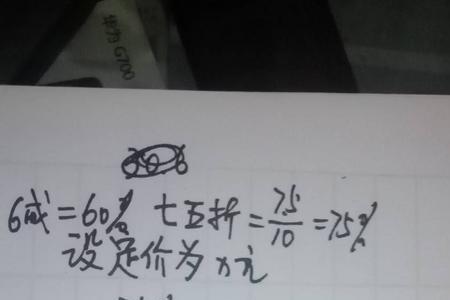 华为 G700
6成=60% 七五折=7.5/10=75%
设定价为x元